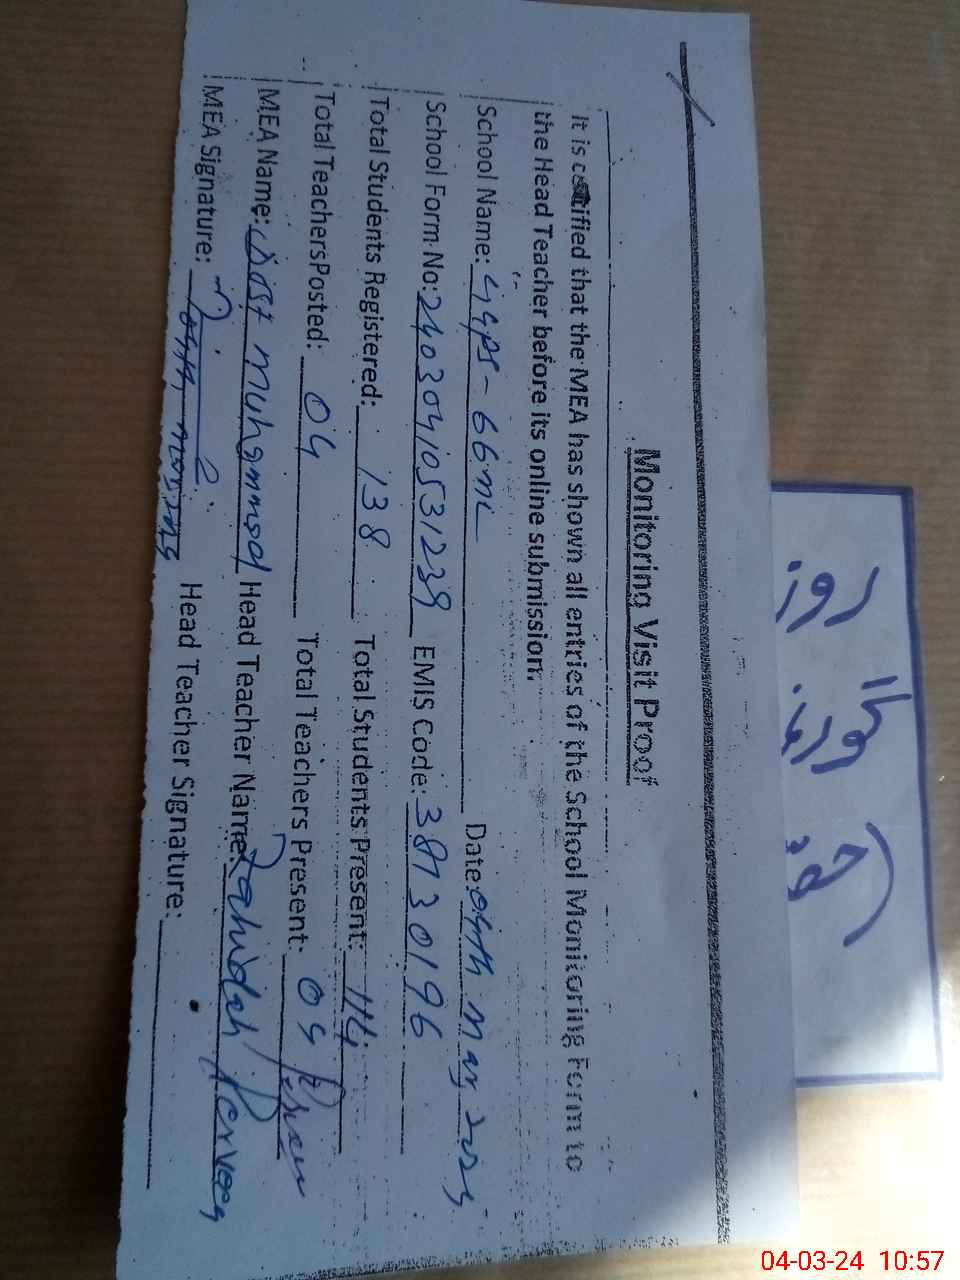 Monitoring Visit Proof
It is certified that the MEA has shown all entries of the School Monitoring Form to
the Head Teacher before its online submission.
School Name: GGPS - 66 ML Date: 04th
School Form No: 24030410531239 EMIS Code: 38730196
Total Students Registered: 138 Total Students Present: 114
Total Teachers Posted: 04 Total Teachers Present: 04
MEA Name: Muhammad Head Teacher Name: Perveen
MEA Signature: Head Teacher Signature:
04-03-24 10:57